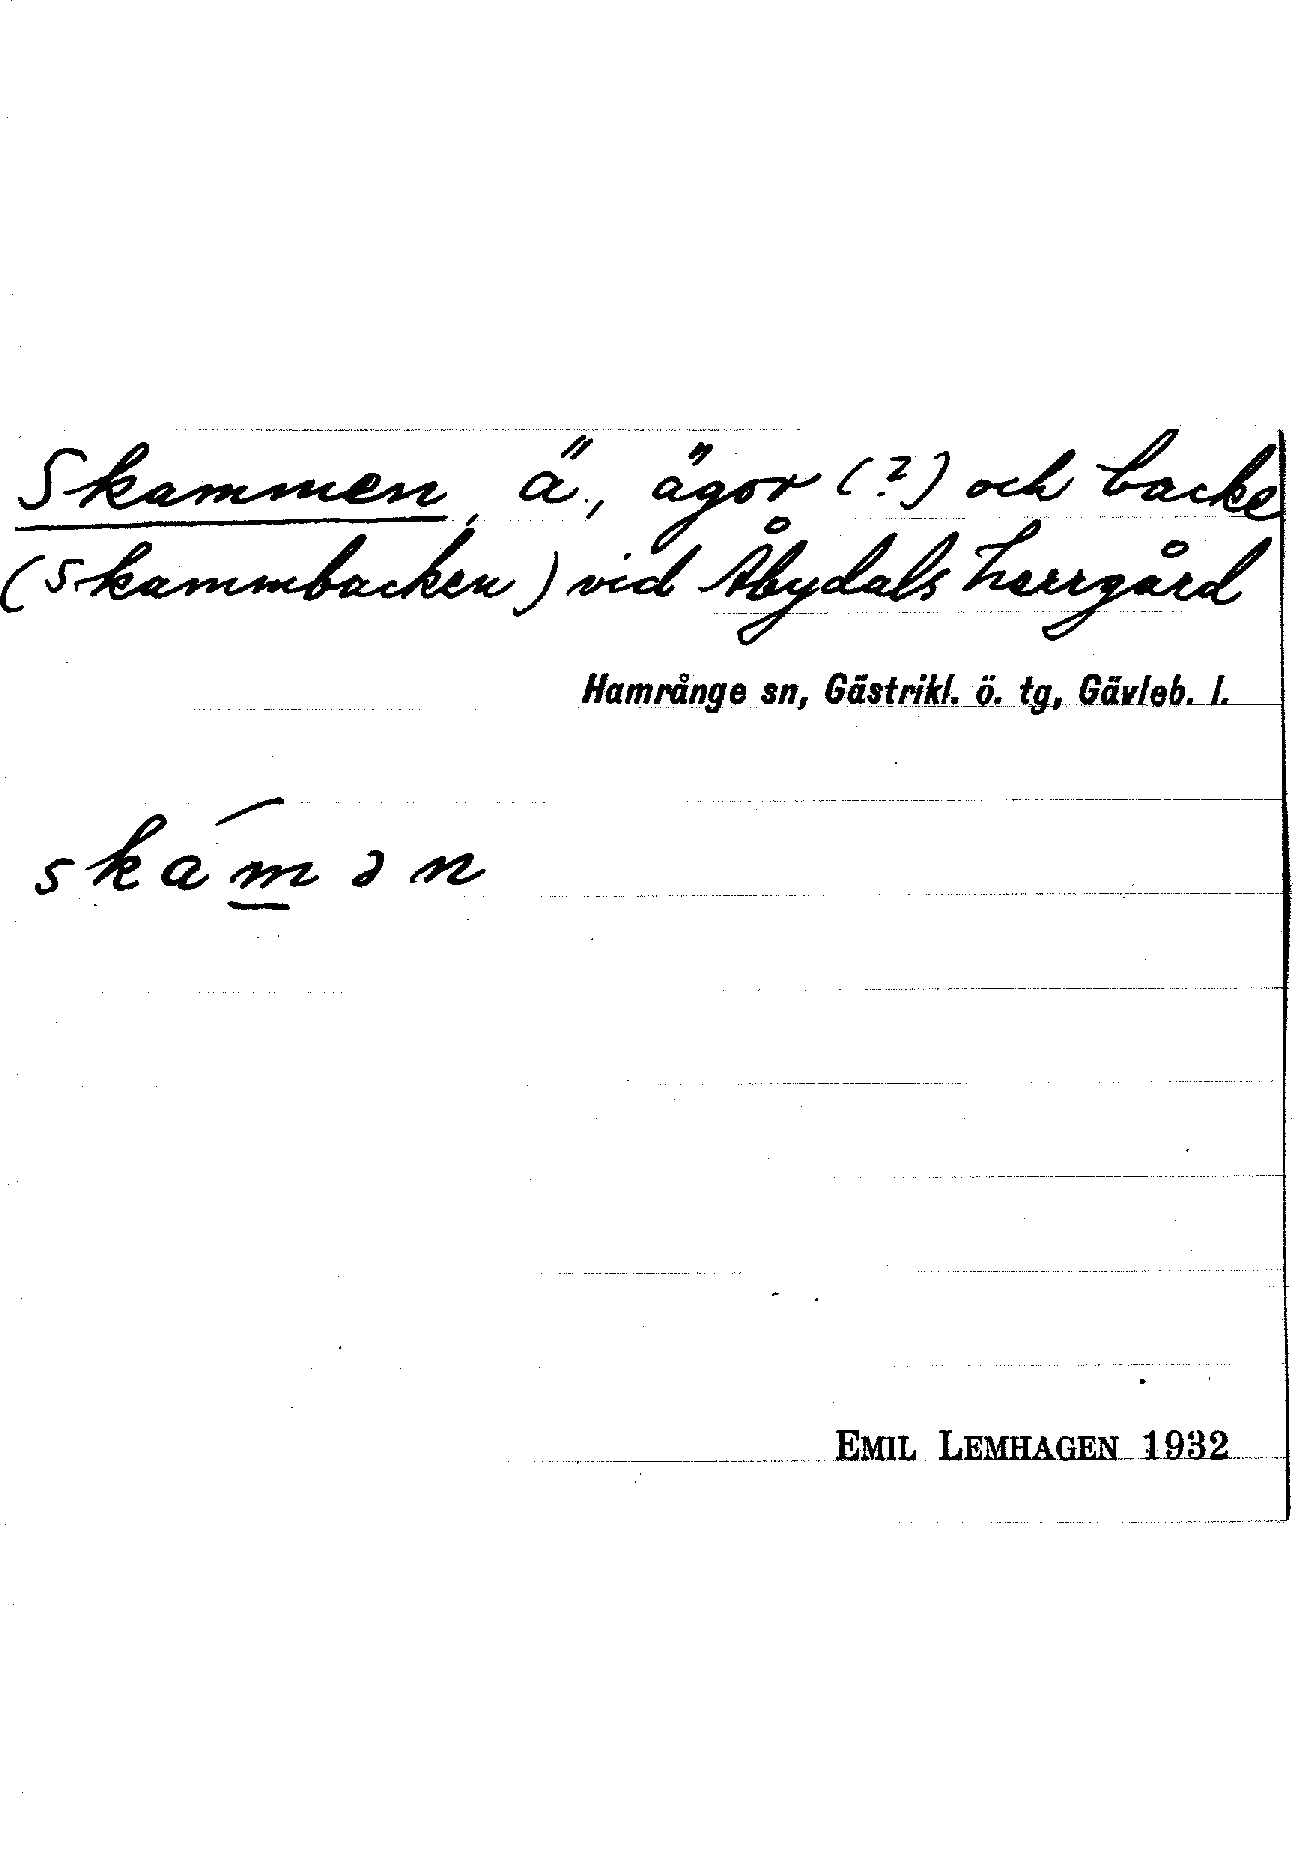 Skammen, ä., ägor (?) och backe
(Skammbacken) vid Åbydals herrgård
Hamrånge sn, Gästrikl. ö. tg, Gävleb. l.
skámən
EMIL LEMHAGEN 1932